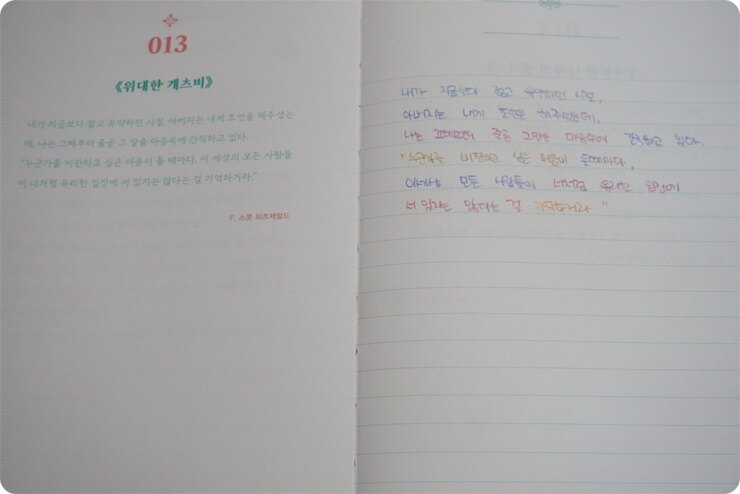 013
《위대한 개츠비》
내가 지금보다 젊고 유약하던 시절, 아버지는 내게 조언을 해주셨는
데, 나는 그때부터 줄곧 그 말을 마음속에 간직하고 있다.
"누군가를 비판하고 싶은 마음이 들 때마다, 이 세상의 모든 사람들
이 너처럼 유리한 입장에 서 있지는 않다는 걸 기억하거라."
F. 스콧 피츠제럴드
내가 지금보다 젊고 유약하던 시절,
아버지는 내게 조언을 해주셨는데,
나는 그때부터 줄곧 그 말을 마음속에 간직하고 있다.
"누군가를 비판하고 싶은 마음이 들때마다,
이세상 모든 사람들이 너처럼 유리한 입장에
서 있지는 않다는 걸 기억하거라"